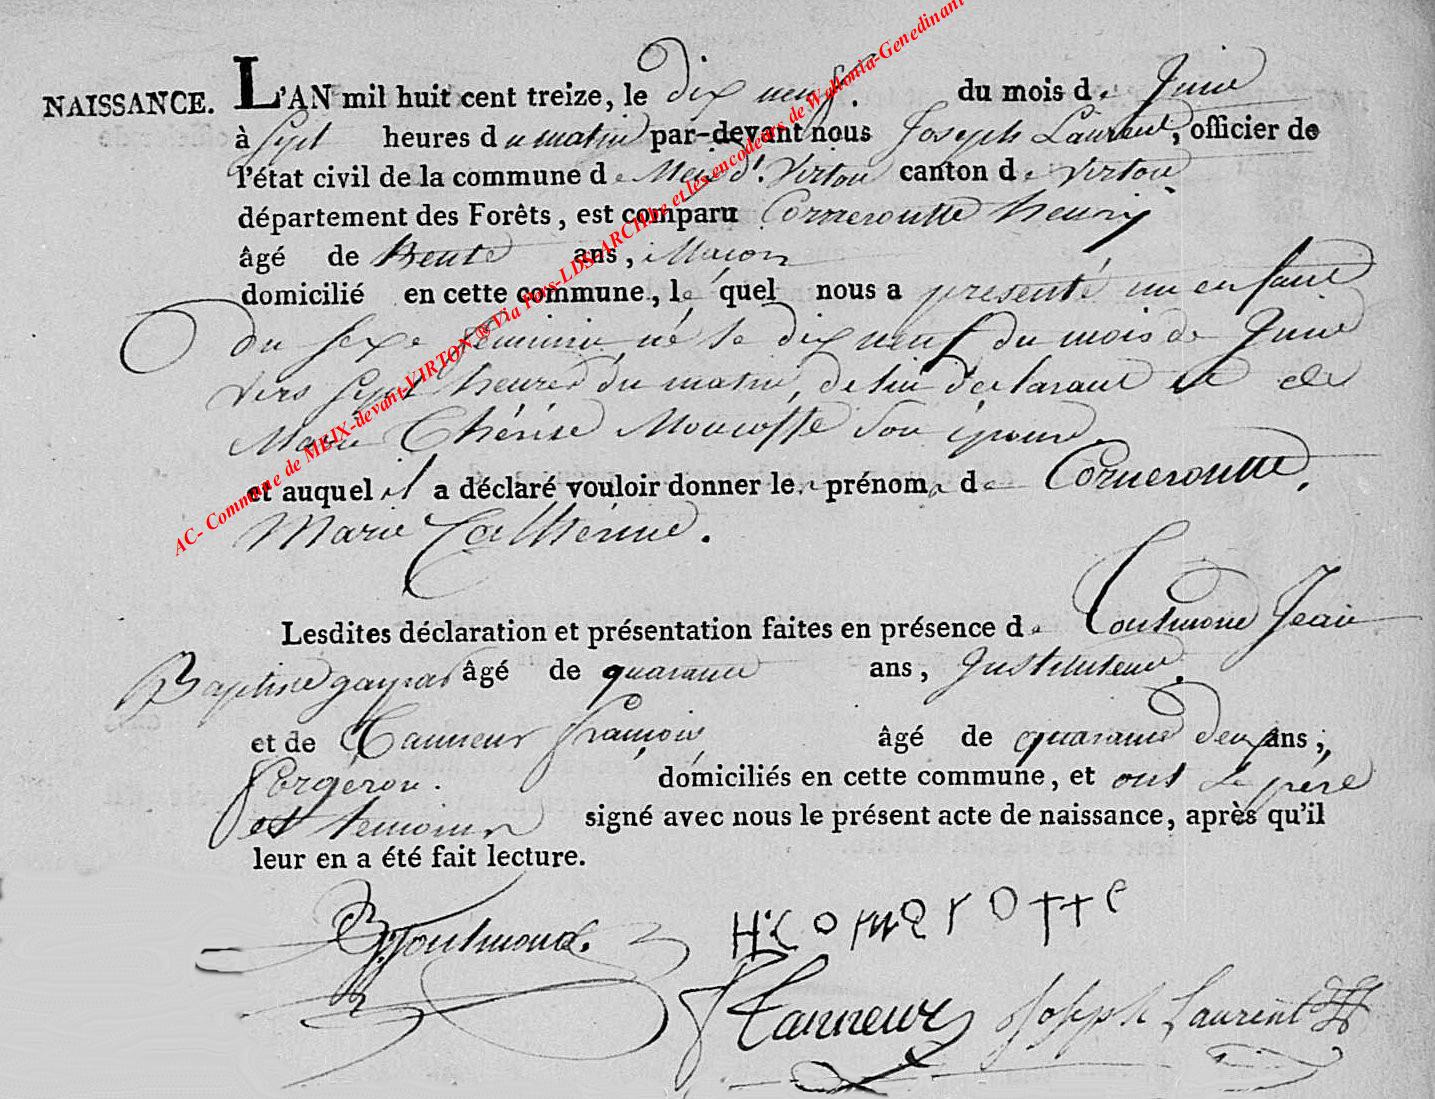 NAISSANCE. L'AN mil huit cent treize, le dix neuf. du mois de Juin
à Sept heures du matin par-devant nous Joseph Laurent, officier de
l'état civil de la commune de Meix dt. Virton canton de Virton
département des Forêts, est comparu Corneroutte henry
âgé de trente ans, Macon
domicilié en cette commune, le quel nous a presenté un enfant
du sexe feminin, né le dix neuf du mois de Juin
vers Sept heures du matin, de lui déclarant et de
Marie Thérése Moucosse son épouse,
et auquel il a déclaré vouloir donner le prénom de Corneroutte,
Marie Catherine.
Lesdites déclaration et présentation faites en présence de Toutmond Jean
Baptiste gaspar âgé de quarante ans, Instituteur,
et de Tanneur françois, âgé de quarante deux ans,
forgeron. domiciliés en cette commune, et ont le père
et temoins signé avec nous le présent acte de naissance, après qu'il
leur en a été fait lecture.
Toutmond. H: comerotte
Tanneur Joseph Laurent
AC- Commune de MEIX-devant-VIRTON ® Via Pers-LDS-ARCHbe et les encodeurs de Wallonia-Genedinant